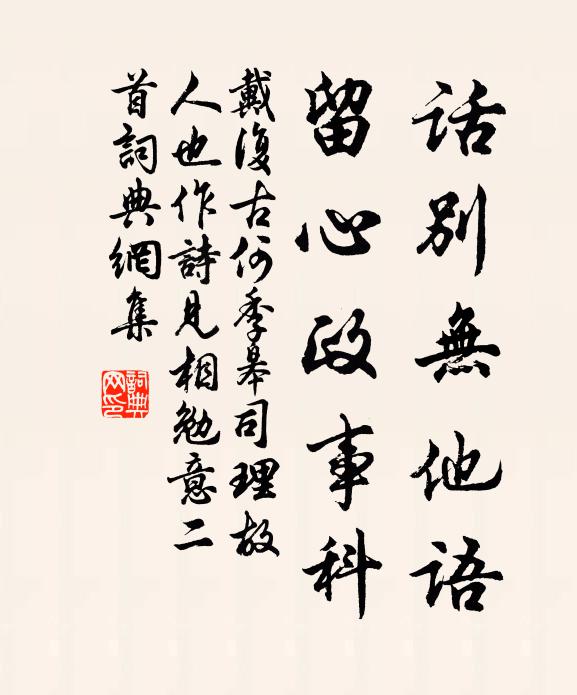 話別無他語
留心政事科
戴復古何季皋司理故
人也作詩見相勉意二
首詞典網集
詞典
网印